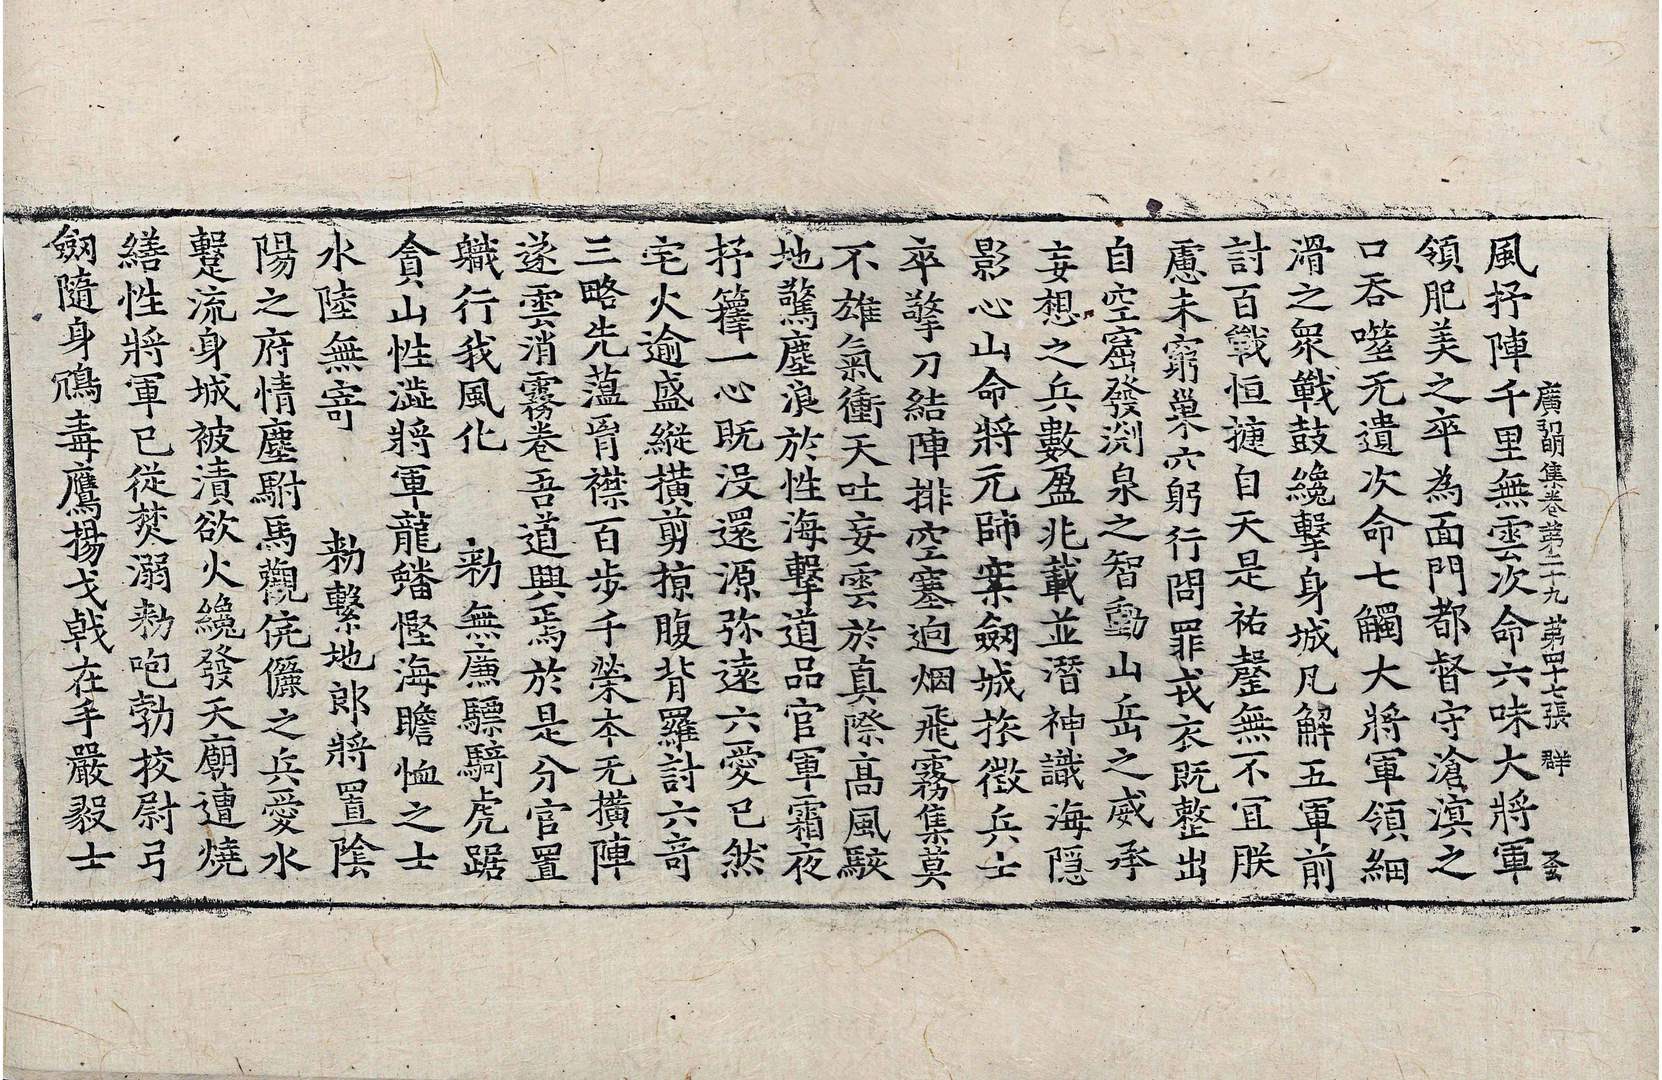 風抒陣千里無雲次命六味大將軍
廣弘明集卷第二十九 第四十七張 群
領肥美之卒為面門都督守滄溟之
口吞噬无遺次命七觸大將軍領細
滑之衆戰鼓纔擊身城凡解五軍前
討百戰恒摙自天是祐罄無不宜朕
慮未窮巢穴躬行問罪戎衣既整出
自空窟發渕泉之智動山岳之威承
妄想之兵數盈兆載並潛神識海隱
影心山命將元師案劒城捺徵兵士
卒擎刀結陣排空塞逈烟飛霧集莫
不雄氣衝天吐妄雲於真際高風駭
地驚塵浪於性海擊道品官軍霜夜
抒籜一心既没還源弥遠六愛已然
宅火逾盛縱橫剪掠腹背羅討六竒
三略先蕰胷襟百步千榮本无擴陣
遂雲消霧卷吾道興焉於是分官置
軄行我風化 勑無廉驃騎虎踞
貪山性澁將軍龍蟠慳海瞻恤之士
水陸無寄 勑繫地郎將置隂
陽之府情塵駙馬觀伉儷之兵愛水
蹔流身城被漬欲火纔發天廟遭燒
繕性將軍已從焚溺勑咆勃挍尉弓
劒隨身鴆毒鷹揚戈戟在手嚴毅士